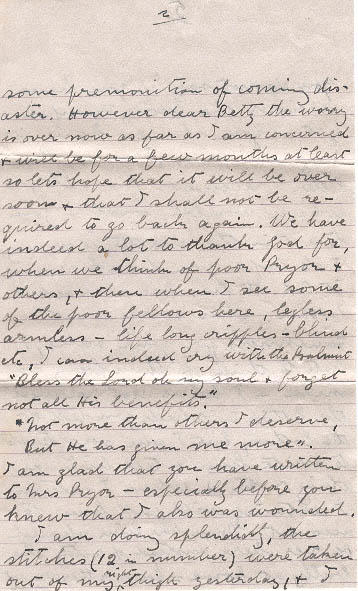 2
some premonition of coming dis-
aster. However dear Betty the worry
is over now as far as I am concerned
& will be for a few months at least
so lets hope that it will be over
soon & that I shall not be re-
quired to go back again. We have
indeed a lot to thank god for,
when we think of poor Pryor &
others, & then when I see some
of the poor fellows here, legless
armless - life long cripples - blind
etc, I can indeed cry with the Psalmist
"Bless the Lord oh my soul & forget
not all His benefits."
"Not more than others I deserve,
But He has given me more".
I am glad that you have written
to Mrs Pryor - especially before you
knew that I also was wounded.
I am doing splendidly, the
stitches (12 in number) were taken
out of my right thigh yesterday, & I